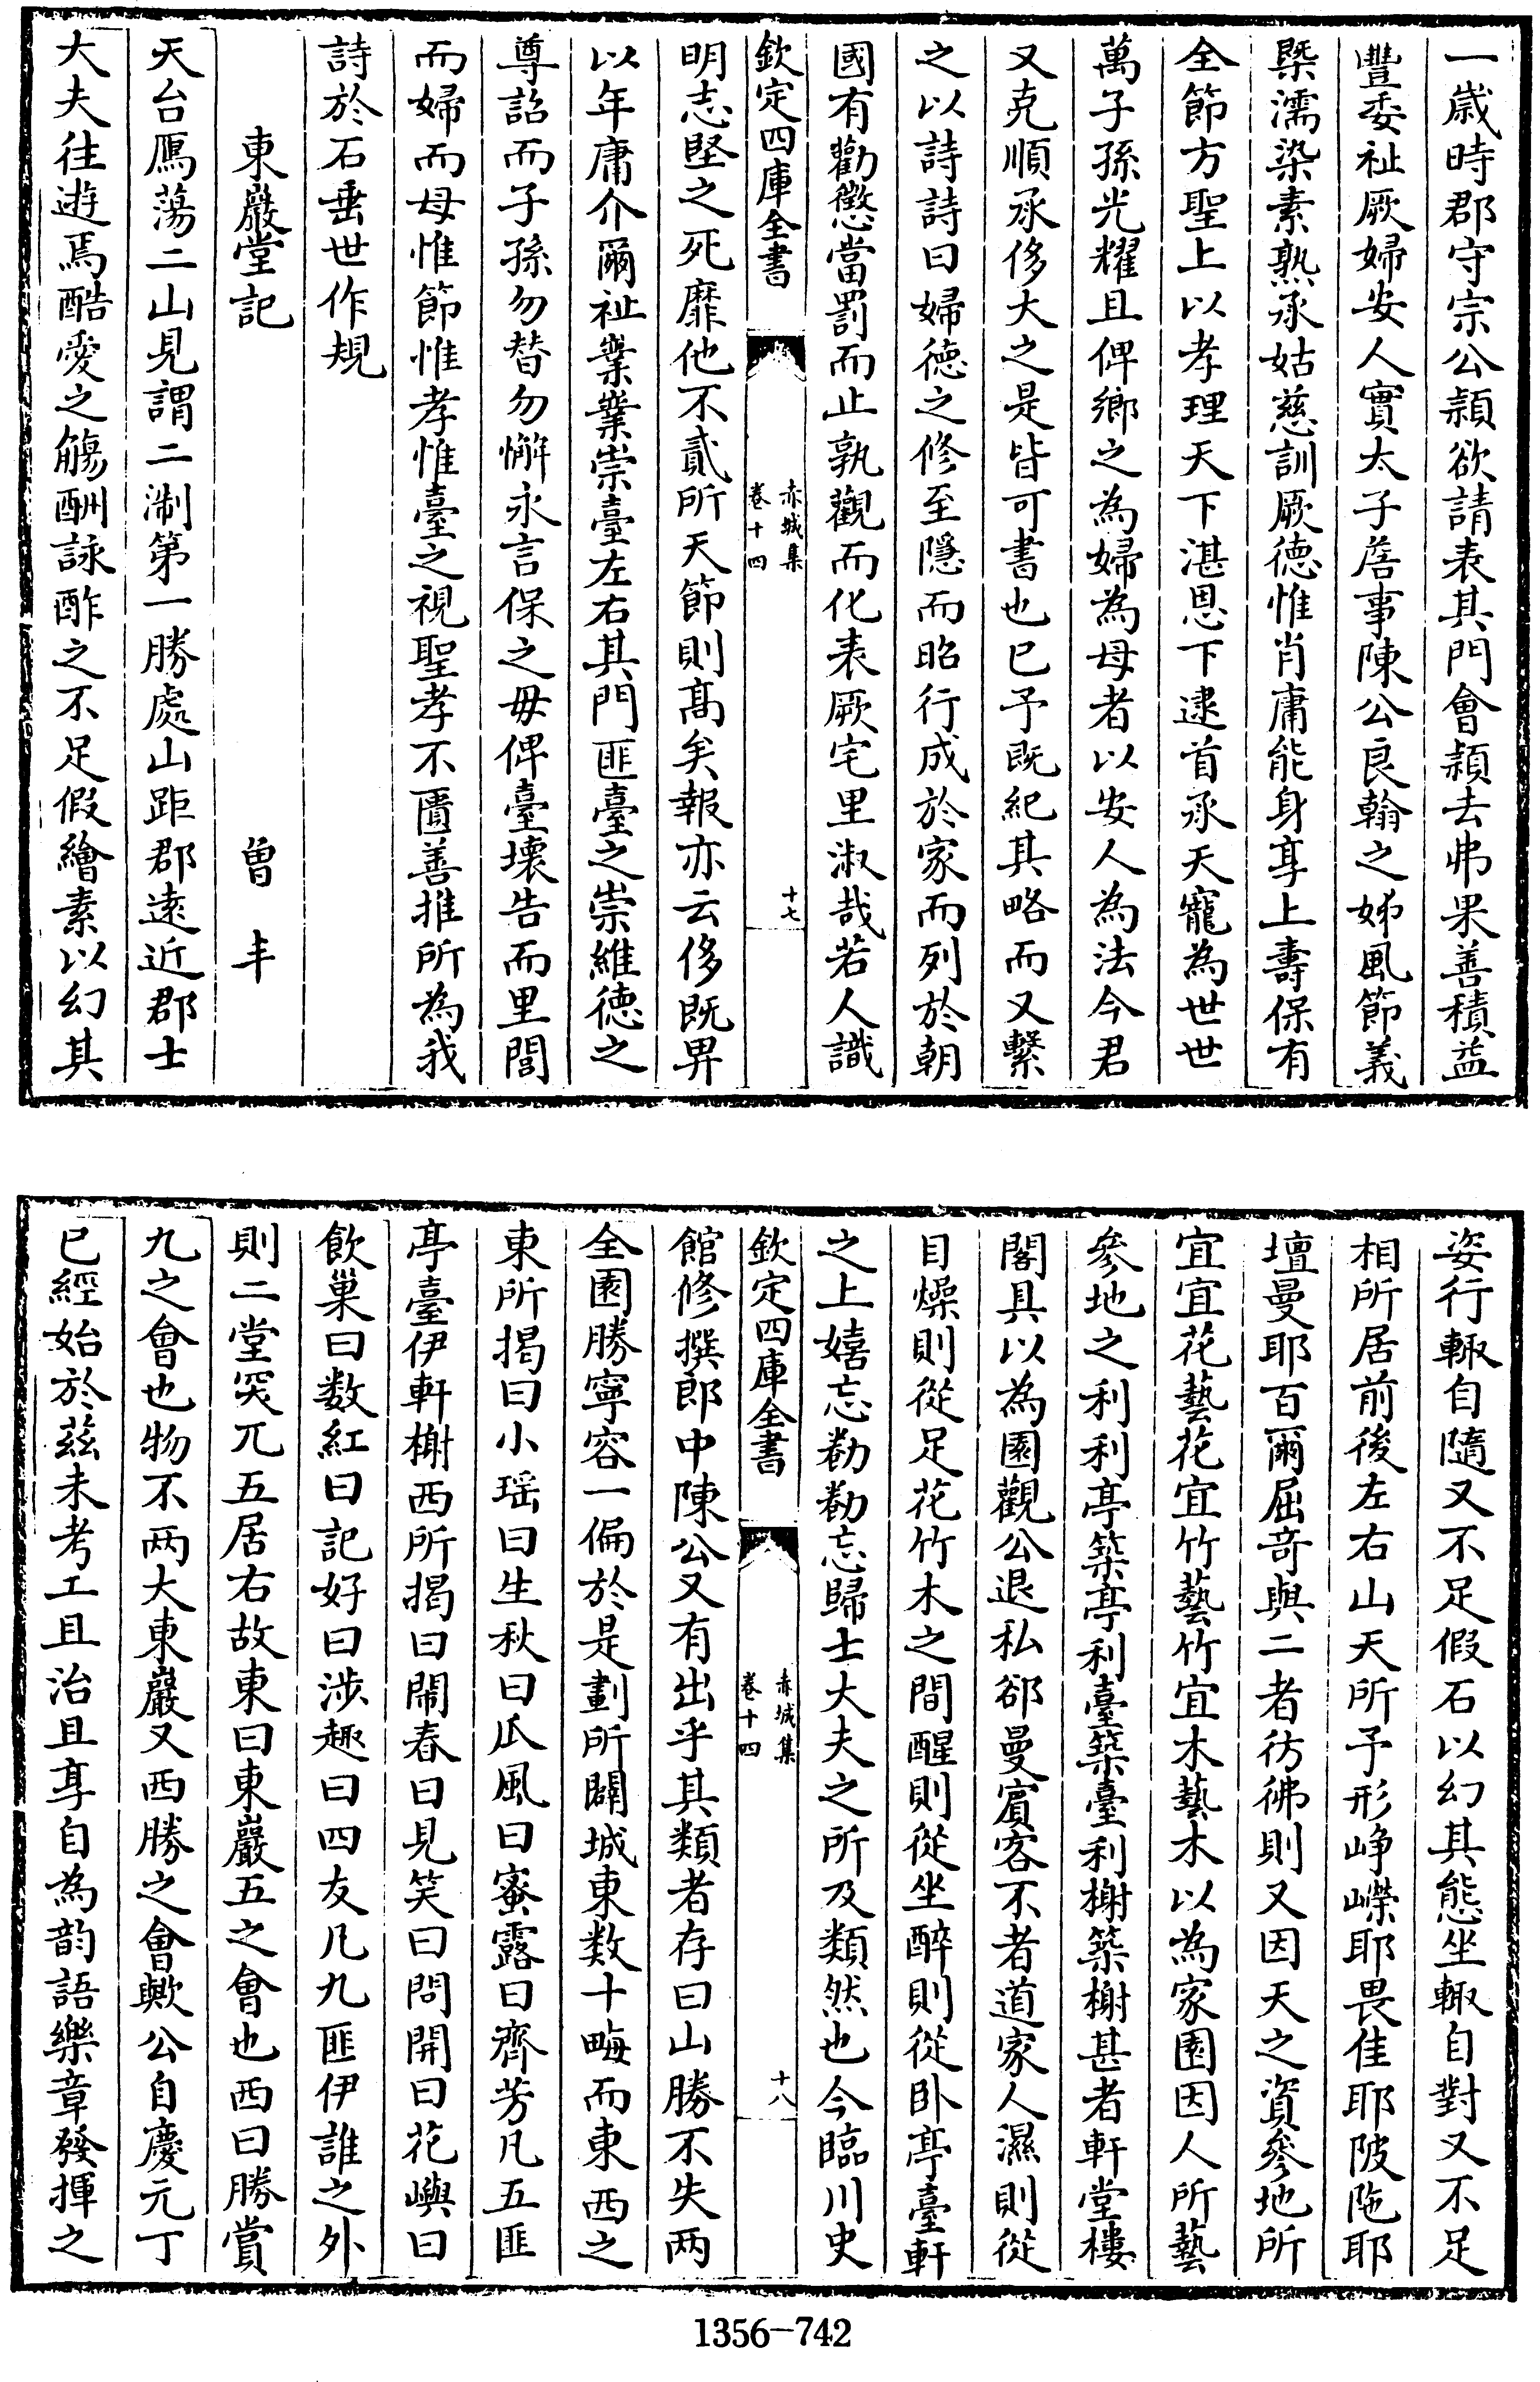 一歳時郡守宗公頴欲請表其門會頴去弗果善積益
豐委祉厥婦安人實太子詹事陳公良翰之姊風節義
槩濡染素熟承姑慈訓厥徳惟肖庸能身享上壽保有
全節方聖上以孝理天下湛恩下逮首承天寵為世世
萬子孫光耀且俾鄉之為婦為母者以安人為法今君
又克順承侈大之是皆可書也已予既紀其略而又繫
之以詩詩曰婦徳之修至隱而昭行成於家而列於朝
國有勸懲當罰而止孰觀而化表厥宅里淑哉若人識
欽定四庫全書
赤城集
卷十四
十七
明志堅之死靡他不貳所天節則髙矣報亦云侈既畀
以年庸介爾祉業業崇臺左右其門匪臺之崇維徳之
尊詔而子孫勿替勿懈永言保之毋俾臺壊告而里閭
而婦而母惟節惟孝惟臺之視聖孝不匱善推所為我
詩於石垂世作規
東巖堂記
曾丰
天台鴈蕩二山見謂二淛第一勝處山距郡逺近郡士
大夫往遊焉酷愛之觴酬詠酢之不足假繪素以幻其
姿行輙自隨又不足假石以幻其態坐輙自對又不足
相所居前後左右山天所予形峥嶸耶畏佳耶陂陁耶
壇曼耶百爾屈竒與二者彷彿則又因天之資參地所
宜宜花藝花宜竹藝竹宜木藝木以為家園因人所藝
參地之利利亭築亭利臺築臺利榭築榭甚者軒堂樓
閣具以為園觀公退私郤曼賔客不者道家人濕則從
目燥則從足花竹木之間醒則從坐醉則從卧亭臺軒
之上嬉忘勌勌忘歸士大夫之所及類然也今臨川史
欽定四庫全書
赤城集
卷十四
十八
館修撰郎中陳公又有出乎其類者存曰山勝不失两
全園勝寧容一偏於是劃所闢城東数十畮而東西之
東所掲曰小瑶曰生秋曰瓜風曰蜜露曰齊芳凡五匪
亭臺伊軒榭西所掲曰閙春曰見笑曰問開曰花嶼曰
飲巢曰数紅曰記好曰涉趣曰四友凡九匪伊誰之外
則二堂突兀五居右故東曰東巖五之會也西曰勝賞
九之會也物不两大東巖又西勝之會歟公自慶元丁
巳經始於茲未考工且治且享自為韵語樂章發揮之
1356-742